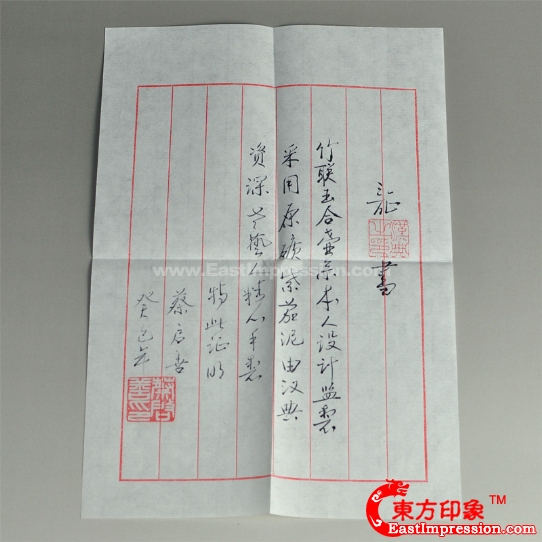 証 書
竹联五合壶系本人设计监製
采用原矿紫茄泥由汉典
资深艺人精心手製
特此证明
蔡启善
癸巳年
www.EastImpression.com
東方印象 TM
EastImpression.com